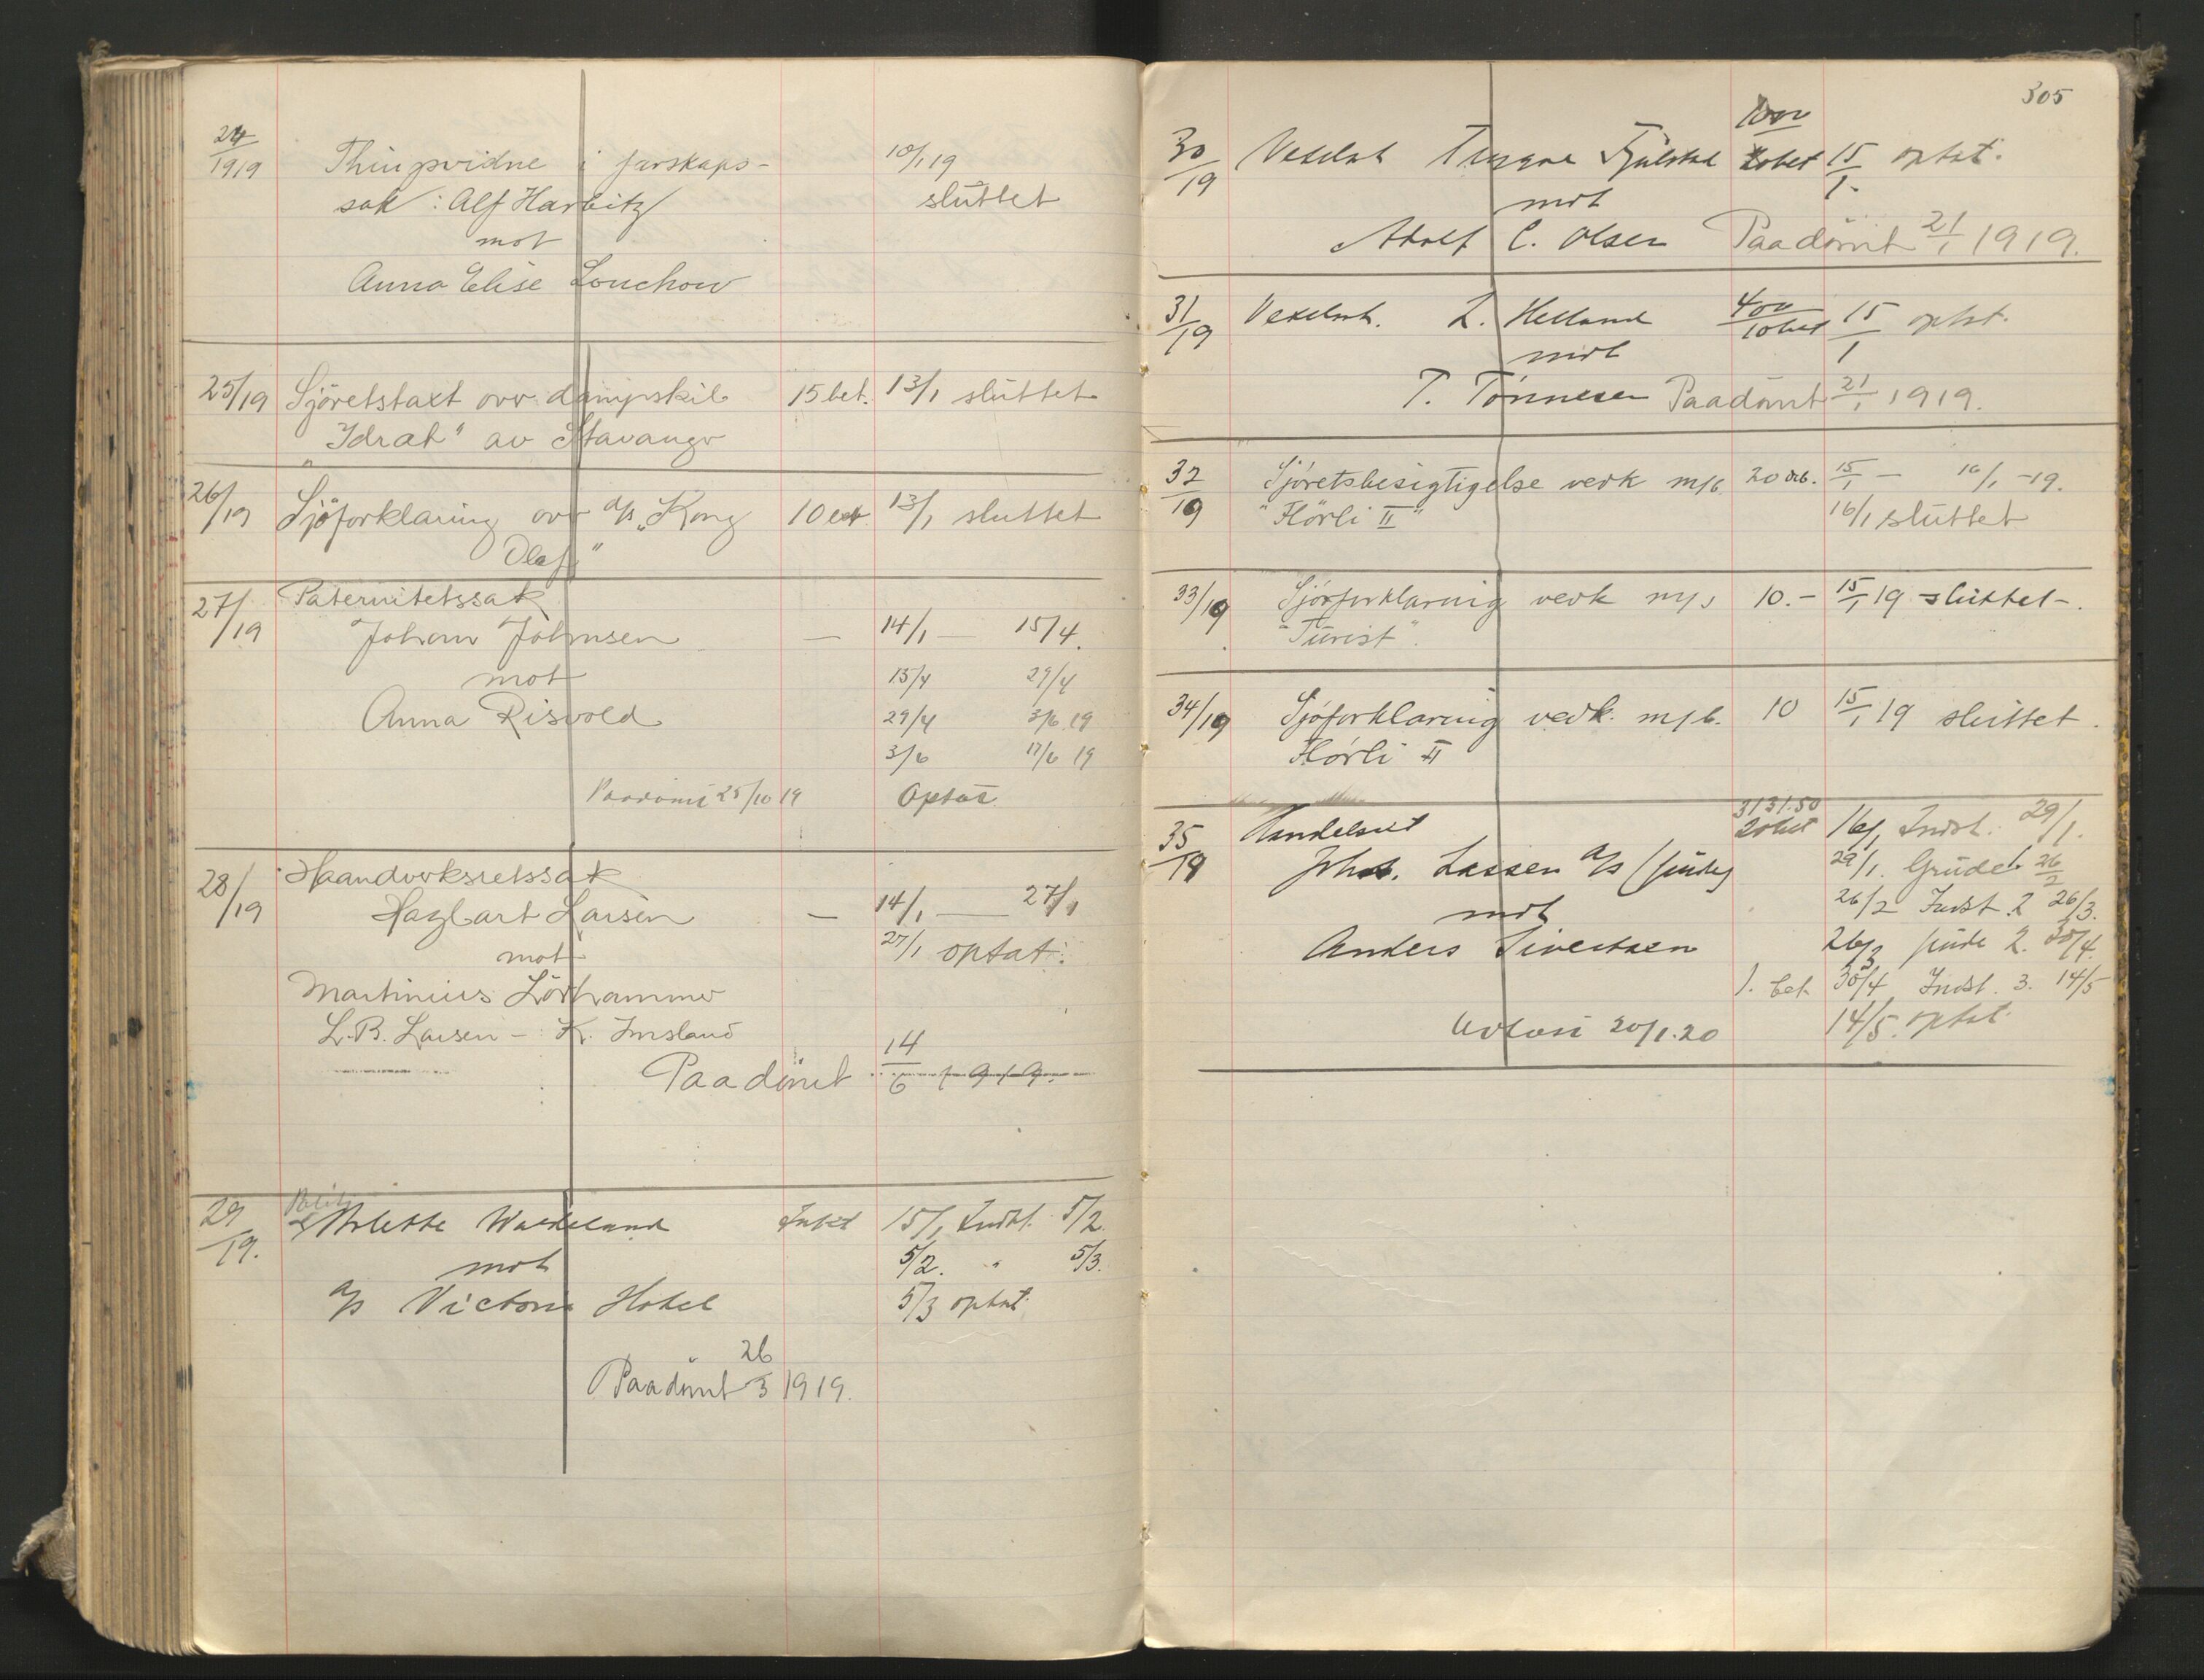 24/1919 Thingsvidne i farskaps- 10/1 19
sak: Alf Harbitz sluttet
mot
Anna Elise Louchow
25/19 Sjöretstaxt over dampskib 15 bet. 13/1 sluttet
"Idræt" av Stavanger
26/19 Sjöforklaring over d/s "Kong 10 bet 13/1 sluttet
Olaf"
27/19 Paternitetssak
Johan Johnsen — 14/1 — 15/4.
mot 15/4 29/4
Anna Risvold 29/4 3/6 19
3/6 17/6 19
Paadömt 25/10 19 Optat
28/19 Haandverksretssak
Hagbart Larsen — 14/1 — 27/1
mot 27/1 optat.
Martinius Lörhammer
L. B. Larsen - K. Imsland
Paadömt 14/6 1919.
29/19. Waldeland 15/1 Indst. 5/2.
mot 5/2. " 5/3.
a/s Victoria Hotel 5/3 optat
Paadömt 26/3 1919.
305
1000
30/19 Vekselsak Trygve Fjelstad 20bet 15/1 optat.
mot
Adolf C. Olsen Paadömt 21/1 1919.
31/19 Vekselsak. L. Helland 400/10bet 15/1 optat.
mot
T. Tönnesen Paadömt 21/1 1919.
32/19 Sjöretsbesigtigelse vedk m/b. 20 bet. 15/1 — 16/1 -19.
"Hörli II" 16/1 sluttet
33/19 Sjöforklaring vedk m/s 10.- 15/1 19 sluttet.
"Turist".
34/19 Sjöforklaring vedk. m/b. 10 15/1 19 sluttet.
Hörli II
35/19 Handelsret 3131.50 20bet 16/1 Indst. 29/1.
Johs. Lassen a/s 29/1. Grüde 1 26/2
mot 26/2 Indst. 2 26/3.
Anders Sivertsen 26/3 2. 30/4.
1. bet 30/4 Indst. 3. 14/5
20/1.20 14/5. optat.